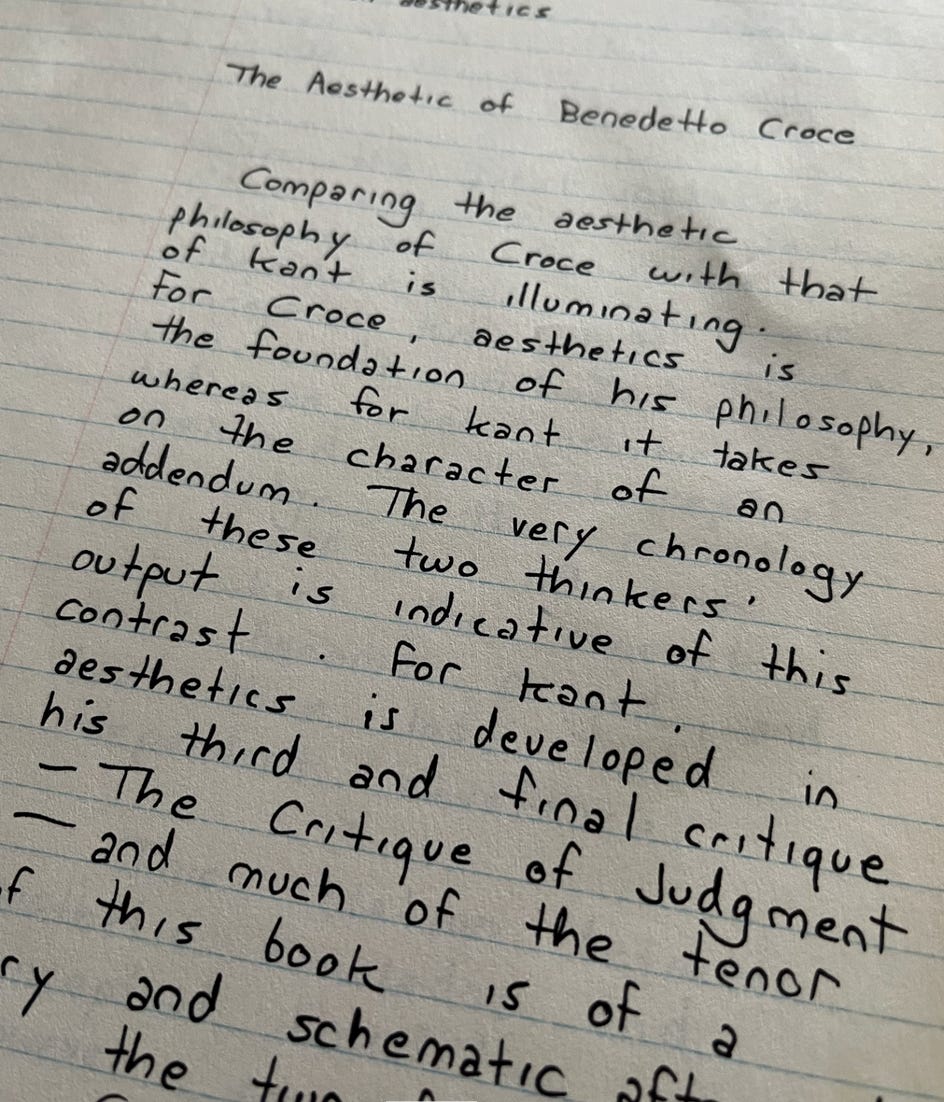 aesthetics
The Aesthetic of Benedetto Croce
Comparing the aesthetic
philosophy of Croce with that
of Kant is illuminating.
For Croce, aesthetics is
the foundation of his philosophy,
whereas for Kant it takes
on the character of an
addendum. The very chronology
of these two thinkers'
output is indicative of this
contrast. For Kant,
aesthetics is developed in
his third and final critique
– The Critique of Judgment
– and much of the tenor
of this book is of a
and schematic
the